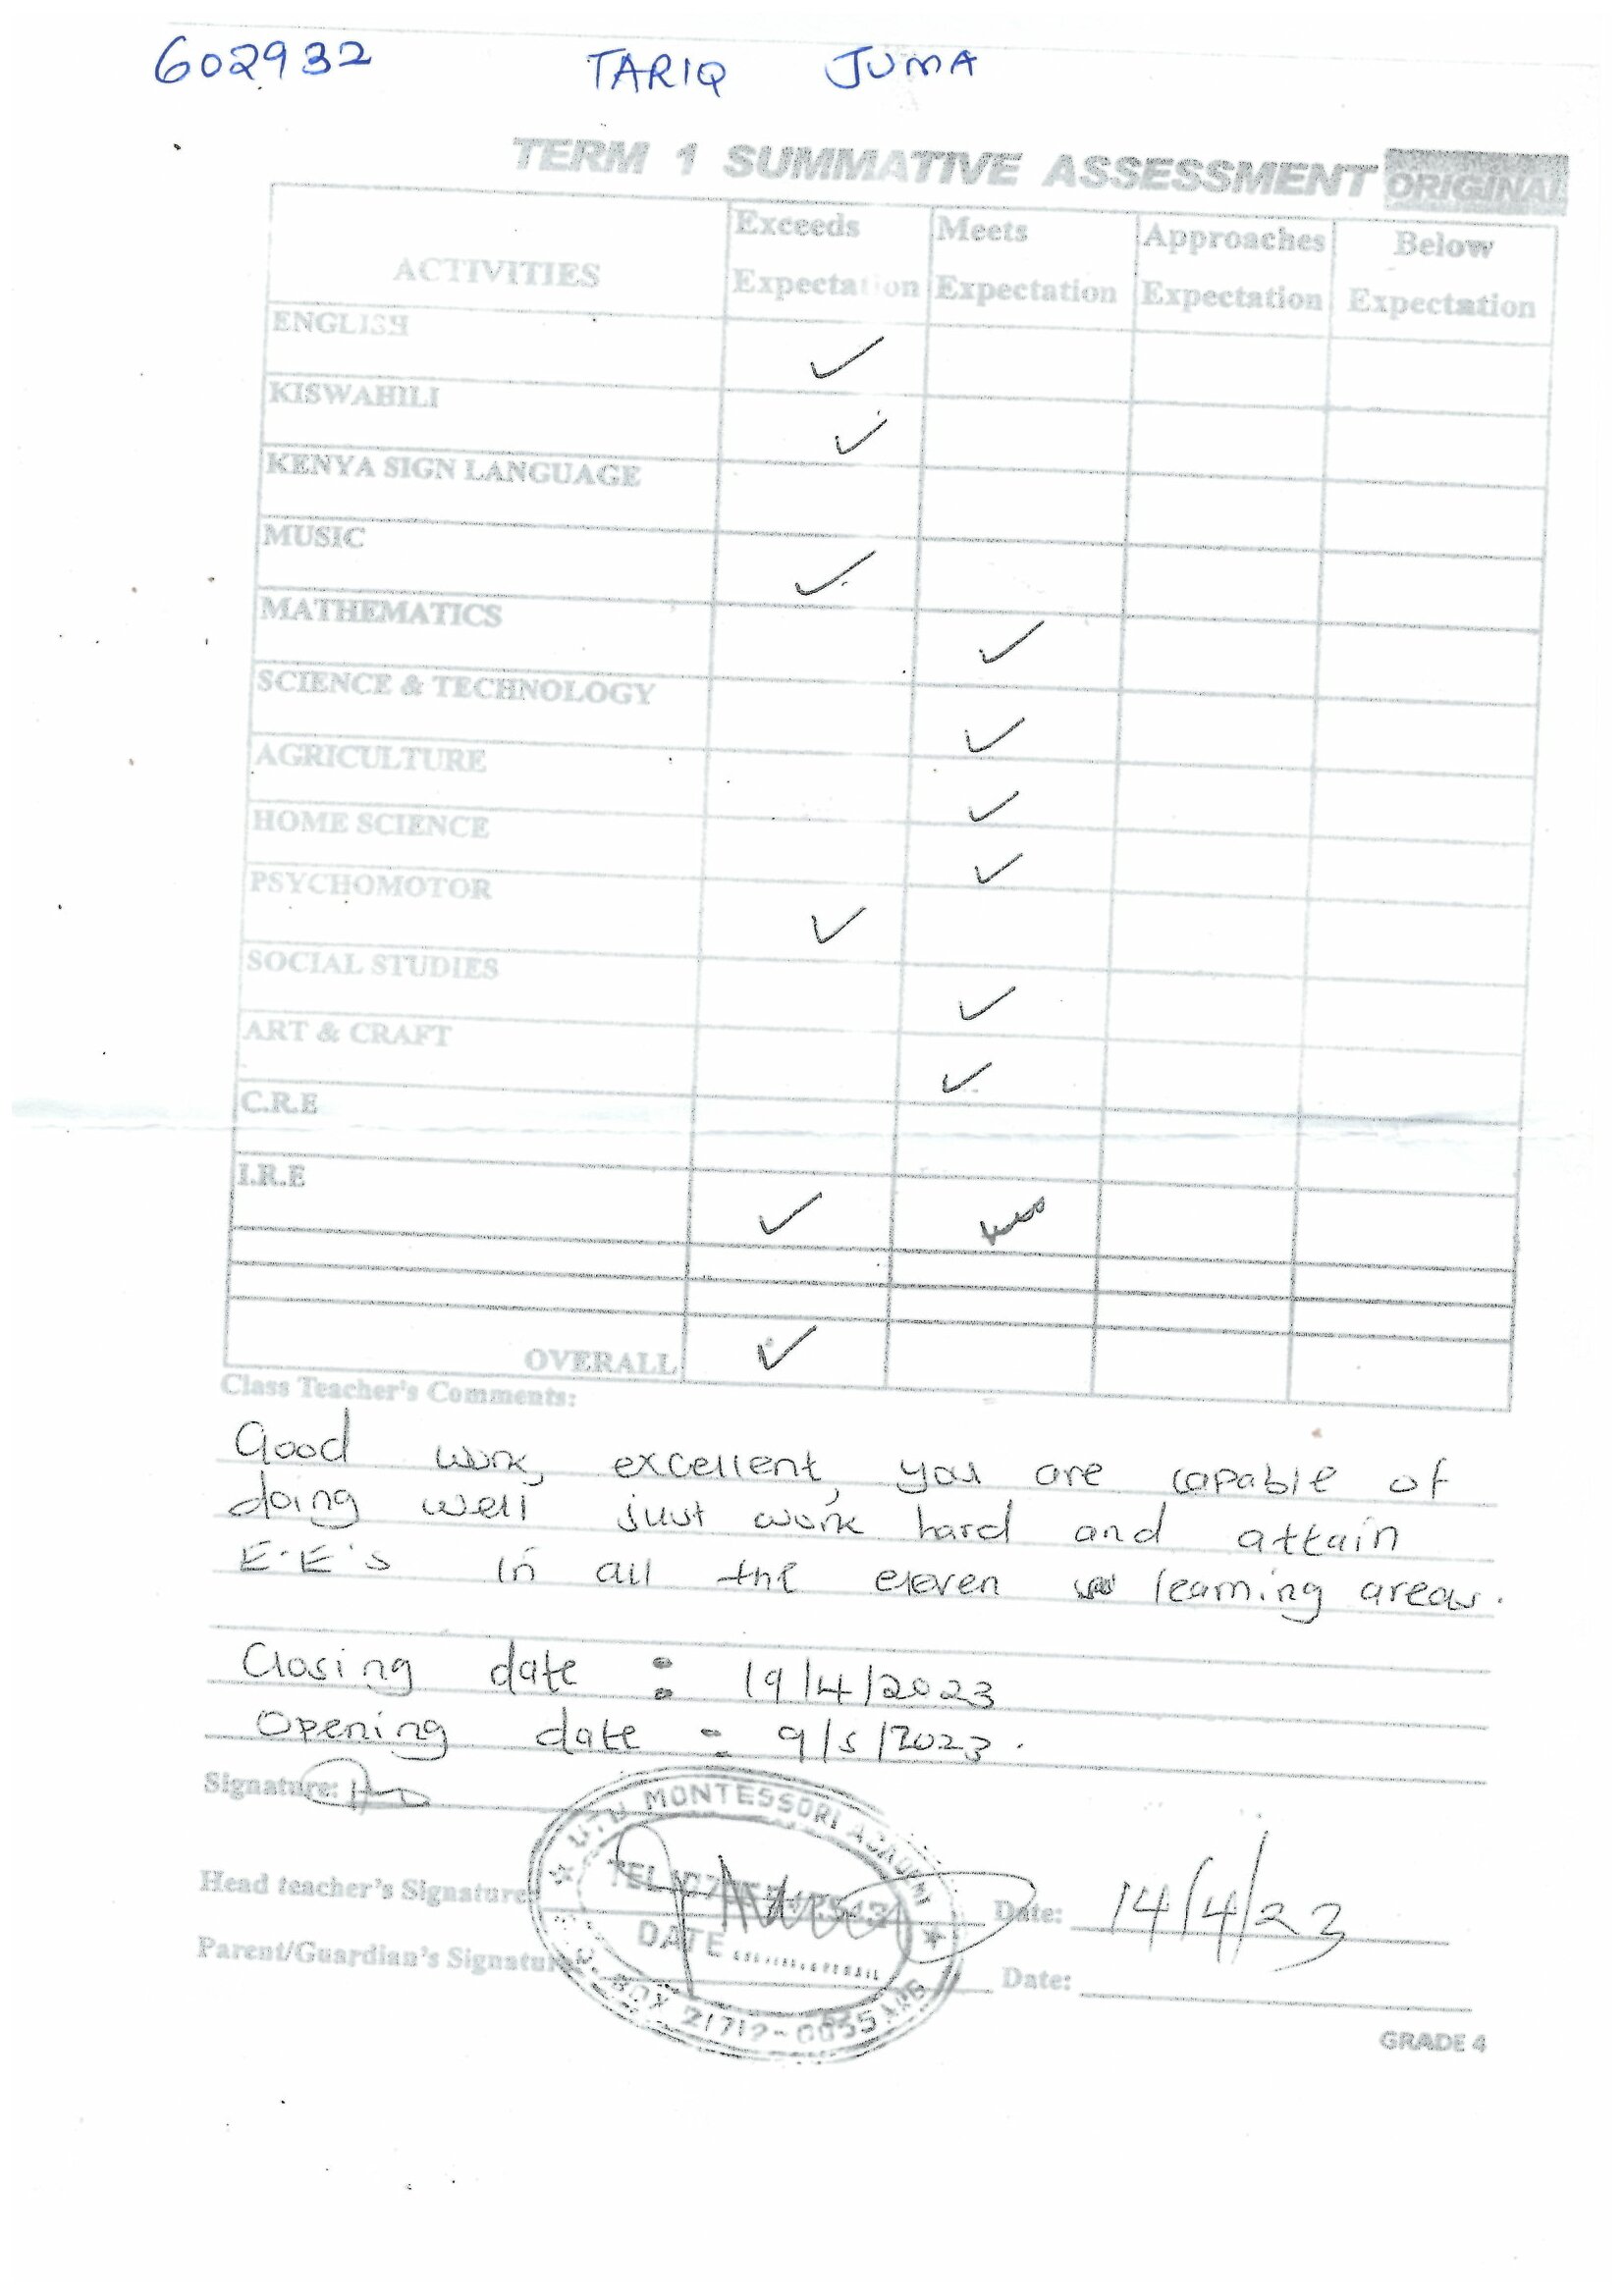 602932 TARIQ JUMA
TERM 1 SUMMATIVE ASSESSMENT ORIGINAL
ACTIVITIES Exceeds Expectation Meets Expectation Approaches Expectation Below Expectation
ENGLISH ✓
KISWAHILI ✓
KENYA SIGN LANGUAGE
MUSIC ✓
MATHEMATICS ✓
SCIENCE & TECHNOLOGY ✓
AGRICULTURE ✓
HOME SCIENCE ✓
PSYCHOMOTOR ✓
SOCIAL STUDIES ✓
ART & CRAFT ✓
C.R.E
I.R.E ✓
OVERALL ✓
Class Teacher's Comments:
Good work, excellent, you are capable of
doing well just work hard and attain
E.E's in all the eleven learning areas.
Closing date : 19/4/2023
Opening date : 9/5/2023.
Signature:
UTU MONTESSORI ACADEMY
TEL
DATE
BOX 21712-
Head teacher's Signature Date: 14/4/23
Parent/Guardian's Signature Date:
GRADE 4